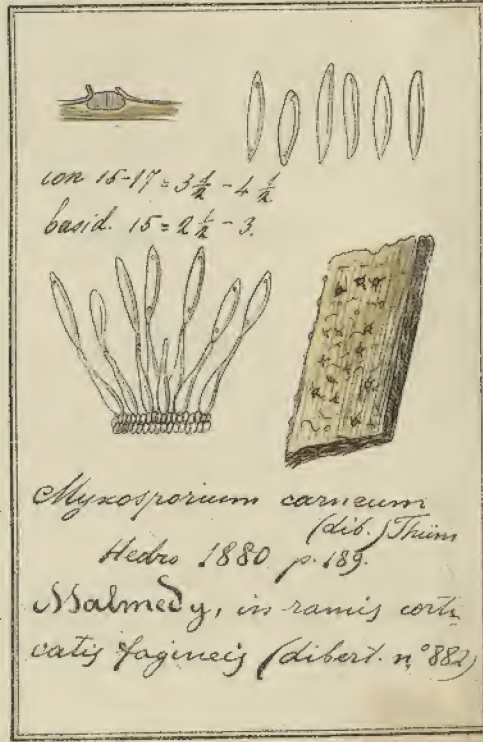 con 15-17 = 3 1/2 - 4 1/2
basid. 15 = 2 1/2 - 3.
Myxosporium carneum
(Lib.) Thüm
Hedw 1880 p. 189.
Malmedy, in ramis corti
catis fagineis (Libert. n° 882)